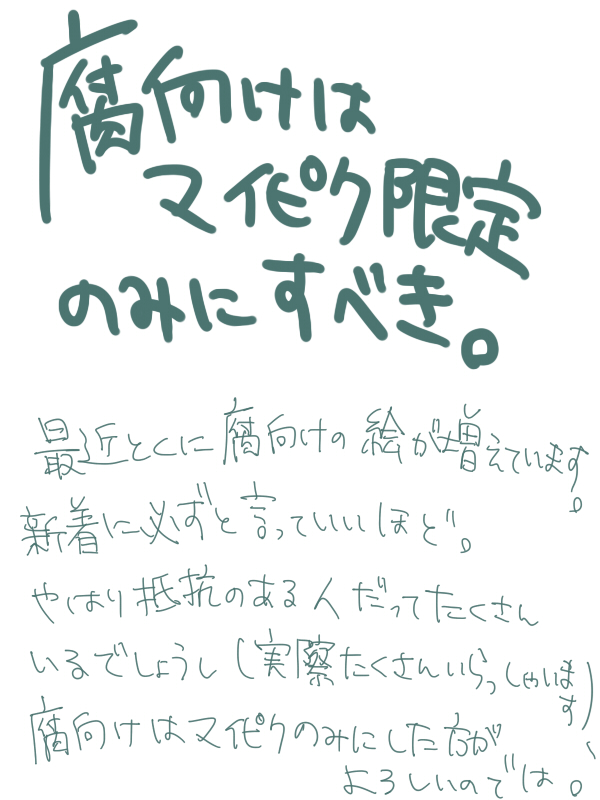 腐向けは
マイピク限定
のみにすべき。
最近とくに腐向けの絵が増えています。
新着に必ずと言っていいほど。
やはり抵抗のある人だってたくさん
いるでしょうし(実際たくさんいらっしゃいます)、
腐向けはマイピクのみにした方が
よろしいのでは。